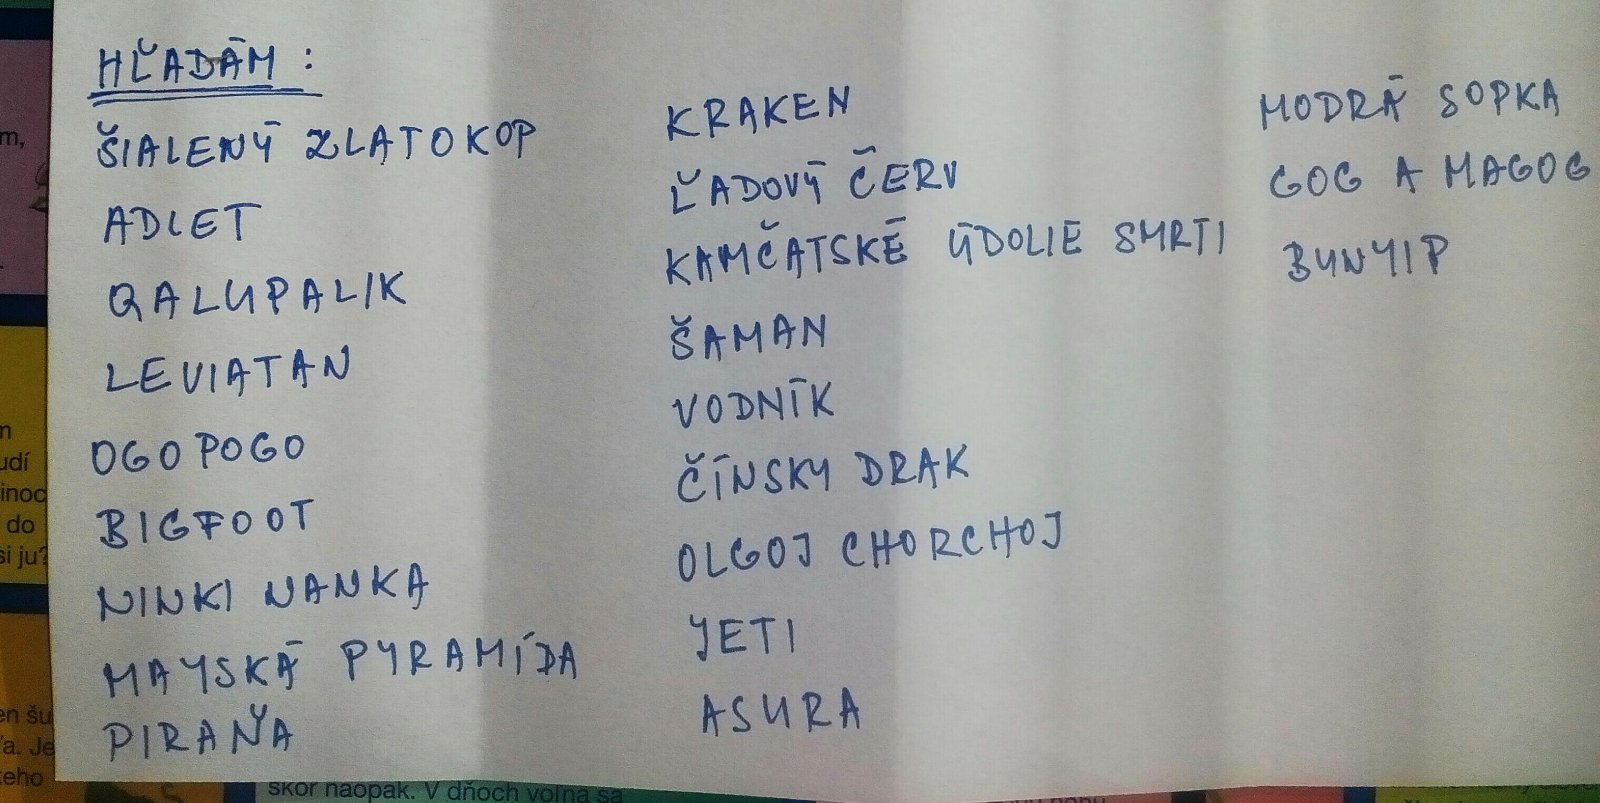 HĽADÁM :
ŠIALENÝ ZLATOKOP
ADLET
QALUPALIK
LEVIATAN
OGOPOGO
BIGFOOT
NINKI NANKA
MAYSKÁ PYRAMÍDA
PIRAŇA
KRAKEN
ĽADOVÝ ČERV
KAMČATSKÉ ÚDOLIE SMRTI
ŠAMAN
VODNÍK
ČÍNSKY DRAK
OLGOJ CHORCHOJ
YETI
ASURA
MODRÁ SOPKA
GOG A MAGOG
BUNYIP
m,
n
udí
inoc
do
si ju?
en šu
ľa. Je
keho
skôr naopak. V dňoch voľna sa